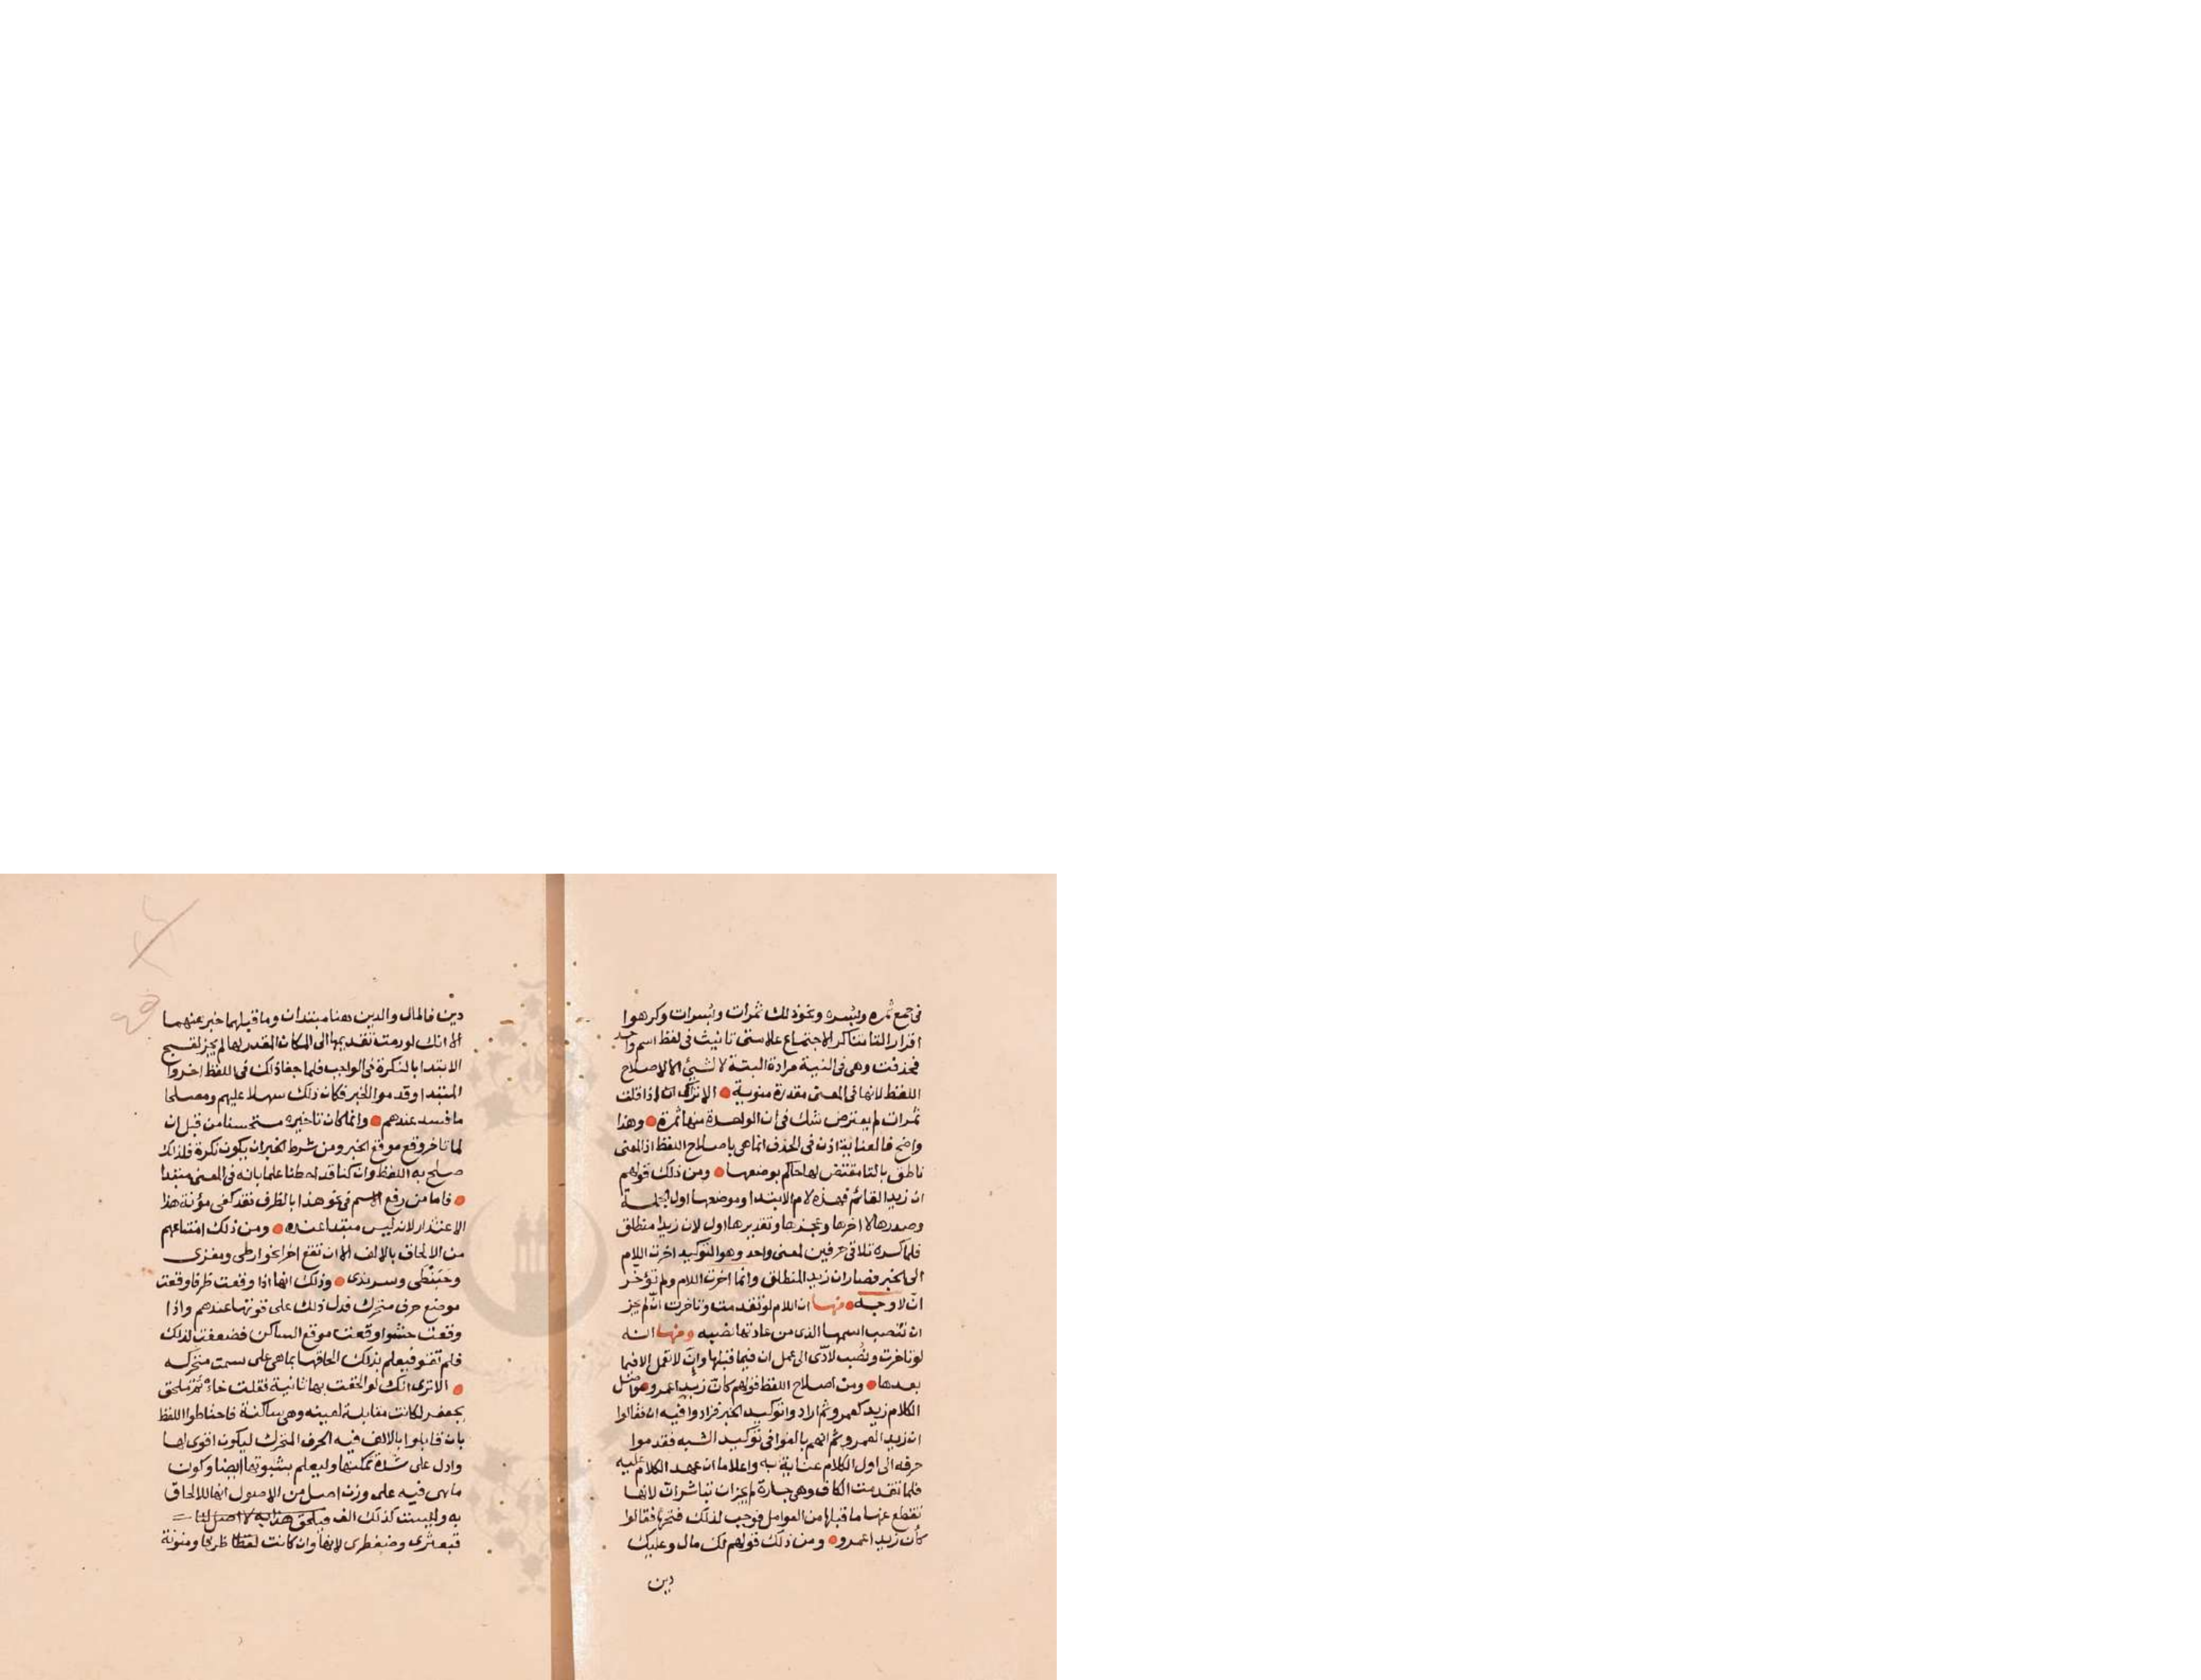 فى جمع ثمره وبسره ونحوذلك ثمرات وبسرات وكرهوا
اقرار التا تناكر الاجتماع علامتى تانيث فى لفظ اسم واحد
فحذفت وهى فى النية مرادة البتة لا لشئ الا لاصلاح
اللفظ لانها فى المعنى مقدرة منوية الا ترى انك اذا قلت
ثمرات لم يعترض شك فى ان الواحدة منها ثمرة وهذا
واضح فالعناية اذن فى الحذف انما هى باصلاح اللفظ اذ المعنى
ناطق بالتا مقتض لها حاكم بوضعها ومن ذلك قولهم
ان زيدا لقائم فهذه لام الابتدا وموضعها اول الجملة
وصدرها لا اخرها وعجزها وتقديرها اول لان زيدا منطلق
فلما كره تلاقى حرفين لمعنى واحد وهو التوكيد اخرت اللام
الى الخبر فصار ان زيدا لمنطلق وانما اخرت اللام ولم تؤخر
ان لاوجه منها ان اللام لو تقدمت وتاخرت ان لم يجز
ان تنصب اسمها الذى من عادتها نصبه ومنها انه
لو تاخرت ونصب لادى الى عمل ان فيما قبلها وان لا تعمل الا فيما
بعدها ومن اصلاح اللفظ قولهم كان زيدا عمرو اصل
الكلام زيد كعمرو ثم ارادوا توكيد الخبر فزادوا فيه ان فقالوا
ان زيدا كعمرو ثم انهم بالغوا فى توكيد الشبه فقدموا
حرفه الى اول الكلام عناية به واعلاما ان عقد الكلام عليه
فلما تقدمت الكاف وهى جارة لم يجز ان تباشر ان لانها
تقطع عنها ما قبلها من العوامل فوجب لذلك فتحها فقالوا
كان زيدا عمرو ومن ذلك قولهم لك مال وعليك
دين
دين فالمال والدين هنا مبتدان وما قبلهما خبر عنهما
الا انك لو رمت تقديمها الى المكان المقدر لها لم يجز لقبح
الابتدا بالنكرة فى الواجب فلما جفا ذلك فى اللفظ اخروا
المبتدا وقدموا الخبر فكان ذلك سهلا عليهم ومصلحا
ما فسد عندهم وانما كان تاخيره مستحسنا من قبل ان
لما تاخر وقع موقع الخبر ومن شرط الخبر ان يكون نكرة فلذلك
صلح به اللفظ وان كنا قد احطنا علما بانه فى المعنى مبتدا
فاما من رفع الاسم فى نحو هذا بالظرف فقد كفى مؤنة هذا
الاعتذار لانه ليس مبتدا عنده ومن ذلك امتناعهم
من الالحاق بالالف الا ان تقع اخرا نحو ارطى ومعزى
وحبنطى وسرندى وذلك انها اذا وقعت طرفا وقعت
موضع حرف متحرك فدل ذلك على قوتها عندهم واذا
وقعت حشوا وقعت موقع الساكن فضعفت لذلك
فلم تقو فيعلم بذلك الحاقها بما هى على سمت متحركه
الا ترى انك لو الحقت بها ثانية فقلت خاتم ملحق
بجعفر لكانت مقابلة لعينه وهى ساكنة فاحتاطوا اللفظ
بان قابلوا بالالف فيه الحرف المتحرك ليكون اقوى لها
وادل على شدة تمكنها وليعلم بثبوتها ايضا وكون
ما هى فيه على وزن اصل من الاصول انها للالحاق
به وليست كذلك الف
قبعثرى وضبغطرى لانها وان كانت لفظا طرفا ومنونة